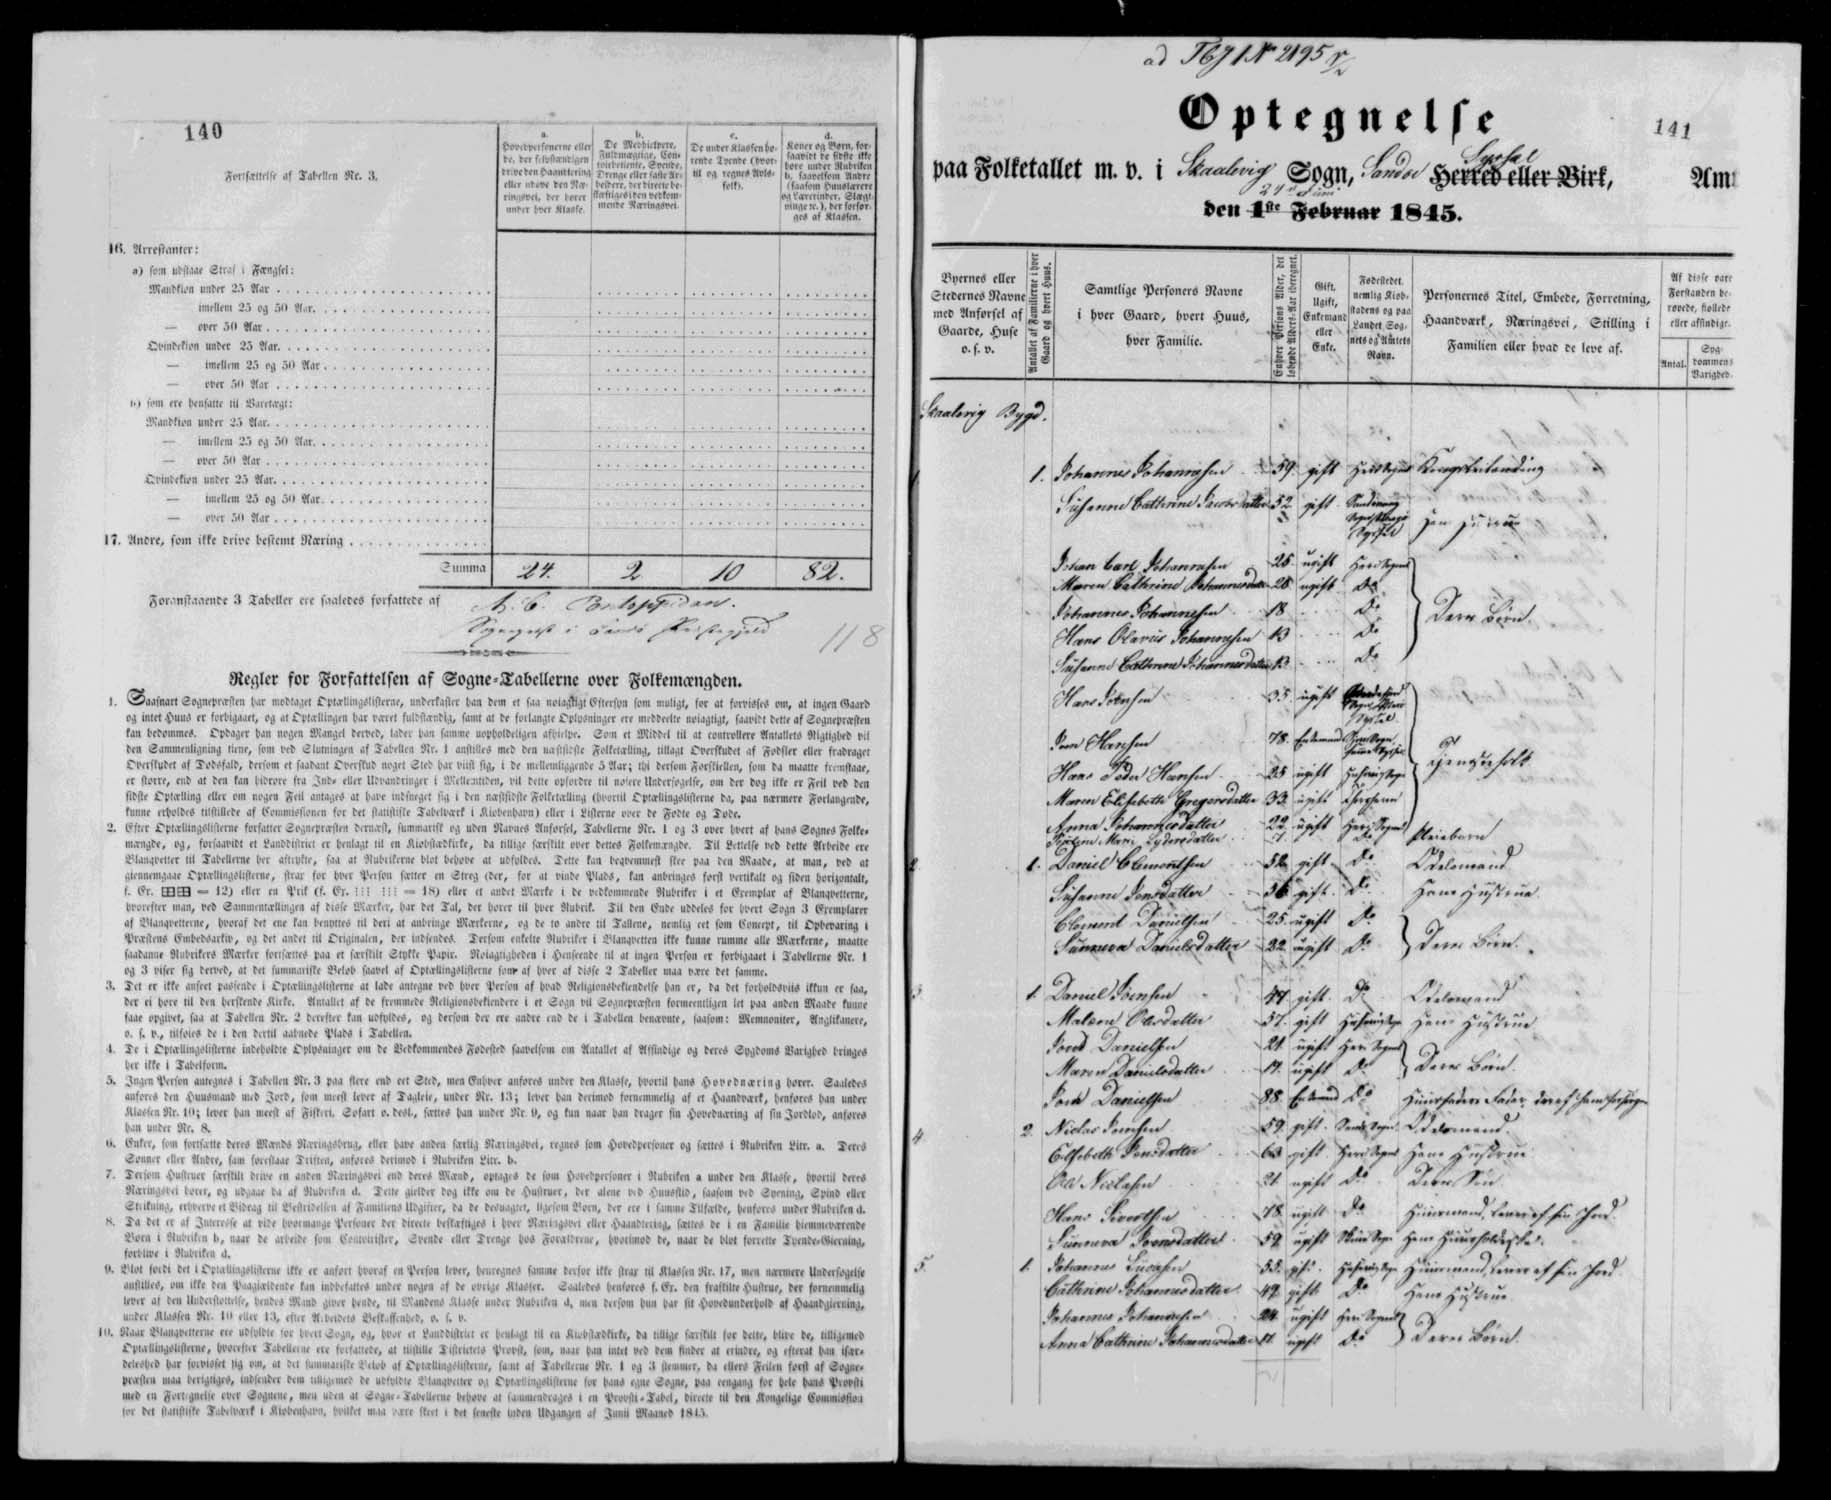 140
Fortsættelse af Tabellen Nr. 3.
a.
Hovedpersonerne eller
de, der selvstændigen
drive den Haandtering
eller udøve den Næ-
ringsvei, der hører
under hver Klasse.
b.
De Medhielpere,
Fuldmægtige, Con-
toirbetiente, Svende,
Drenge eller faste Ar-
beidere, der directe be-
skæftiges i den vedkom-
mende Næringsvei.
c.
De under Klassen hø-
rende Tyende (hvor-
til og regnes Avls-
folk).
d.
Koner og Børn, for-
saavidt de sidste ikke
høre under Rubriken
b, saavelsom Andre
(saasom Huuslærere
og Lærerinder, Slægt-
ninge ꝛc.), der forsør-
ges af Klassen.
16. Arrestanter:
a) som udstaae Straf i Fængsel:
Mandkiøn under 25 Aar
— imellem 25 og 50 Aar.
— over 50 Aar
Qvindekiøn under 25 Aar.
— imellem 25 og 50 Aar
— over 50 Aar
b) som ere hensatte til Varetægt:
Mandkiøn under 25 Aar.
— imellem 25 og 50 Aar.
— over 50 Aar
Qvindekiøn under 25 Aar.
— imellem 25 og 50 Aar.
— over 50 Aar
17. Andre, som ikke drive bestemt Næring
Summa 24. 2 10 82.
Foranstaaende 3 Tabeller ere saaledes forfattede af
Pontoppidan.
118
Regler for Forfattelsen af Sogne-Tabellerne over Folkemængden.
1. Saasnart Sognepræsten har modtaget Optællingslisterne, underkaster han dem et saa nøiagtigt Eftersyn som muligt, for at forvisses om, at ingen Gaard
og intet Huus er forbigaaet, og at Optællingen har været fuldstændig, samt at de forlangte Oplysninger ere meddeelte nøiagtigt, saavidt dette af Sognepræsten
kan bedømmes. Opdager han nogen Mangel derved, lader han samme uopholdeligen afhielpe. Som et Middel til at controllere Antallets Rigtighed vil
den Sammenligning tiene, som ved Slutningen af Tabellen Nr. 1 anstilles med den næstsidste Folketælling, tillagt Overskudet af Fødsler eller fradraget
Overskudet af Dødsfald, dersom et saadant Overskud noget Sted har viist sig, i de mellemliggende 5 Aar; thi dersom Forskiellen, som da maatte fremstaae,
er større, end at den kan hidrøre fra Ind- eller Udvandringer i Mellemtiden, vil dette opfordre til nøiere Undersøgelse, om der dog ikke er Feil ved den
sidste Optælling eller om nogen Feil antages at have indsneget sig i den næstsidste Folketælling (hvortil Optællingslisterne da, paa nærmere Forlangende,
kunne erholdes tilstillede af Commissionen for det statistiske Tabelværk i Kiøbenhavn) eller i Listerne over de Fødte og Døde.
2. Efter Optællingslisterne forfatter Sognepræsten dernæst, summarisk og uden Navnes Anførsel, Tabellerne Nr. 1 og 3 over hvert af hans Sognes Folke-
mængde, og, forsaavidt et Landdistrict er henlagt til en Kiøbstædkirke, da tillige særskilt over dettes Folkemængde. Til Lettelse ved dette Arbeide ere
Blanqvetter til Tabellerne her aftrykte, saa at Rubrikerne blot behøve at udfyldes. Dette kan beqvemmest skee paa den Maade, at man, ved at
giennemgaae Optællingslisterne, strax for hver Person sætter en Streg (der, for at vinde Plads, kan anbringes først vertikalt og siden horizontalt,
f. Ex. = 12) eller en Prik (f. Ex. = 18) eller et andet Mærke i de vedkommende Rubriker i et Exemplar af Blanqvetterne,
hvorefter man, ved Sammentællingen af disse Mærker, har det Tal, der hører til hver Rubrik. Til den Ende uddeles for hvert Sogn 3 Exemplarer
af Blanqvetterne, hvoraf det ene kan benyttes til deri at anbringe Mærkerne, og de to andre til Tallene, nemlig eet som Concept, til Opbevaring i
Præstens Embedsarkiv, og det andet til Originalen, der indsendes. Dersom enkelte Rubriker i Blanqvetten ikke kunne rumme alle Mærkerne, maatte
saadanne Rubrikers Mærker fortsættes paa et særskilt Stykke Papir. Nøiagtigheden i Henseende til at ingen Person er forbigaaet i Tabellerne Nr. 1
og 3 viser sig derved, at det summariske Beløb saavel af Optællingslisterne som af hver af disse 2 Tabeller maa være det samme.
3. Det er ikke anseet passende i Optællingslisterne at lade antegne ved hver Person af hvad Religionsbekiendelse han er, da det forholdsviis ikkun er faa,
der ei høre til den herskende Kirke. Antallet af de fremmede Religionsbekiendere i et Sogn vil Sognepræsten formeentligen let paa anden Maade kunne
faae opgivet, saa at Tabellen Nr. 2 derefter kan udfyldes, og dersom der ere andre end de i Tabellen benævnte, saasom: Memnoniter, Anglikanere,
o. s. v., tilføies de i den dertil aabnede Plads i Tabellen.
4. De i Optællingslisterne indeholdte Oplysninger om de Vedkommendes Fødested saavelsom om Antallet af Afsindige og deres Sygdoms Varighed bringes
her ikke i Tabelform.
5. Ingen Person antegnes i Tabellen Nr. 3 paa flere end eet Sted, men Enhver anføres under den Klasse, hvortil hans Hovednæring hører. Saaledes
anføres den Huusmand med Jord, som meest lever af Dagleie, under Nr. 13; lever han derimod fornemmelig af et Haandværk, henføres han under
Klassen Nr. 10; lever han meest af Fiskeri, Søfart o. desl., sættes han under Nr. 9, og kun naar han drager sin Hovednæring af sin Jordlod, anføres
han under Nr. 8.
6. Enker, som fortsætte deres Mænds Næringsbrug, eller have anden særlig Næringsvei, regnes som Hovedpersoner og sættes i Rubriken Litr. a. Deres
Sønner eller Andre, som forestaae Driften, anføres derimod i Rubriken Litr. b.
7. Dersom Hustruer særskilt drive en anden Næringsvei end deres Mænd, optages de som Hovedpersoner i Rubriken a under den Klasse, hvortil deres
Næringsvei hører, og udgaae da af Rubriken d. Dette gielder dog ikke om de Hustruer, der alene ved Huusflid, saasom ved Spening, Spind eller
Strikning, erhverve et Bidrag til Bestridelsen af Familiens Udgifter, da de desuagtet, ligesom Børn, der ere i samme Tilfælde, henføres under Rubriken d.
8. Da det er af Interesse at vide hvormange Personer der directe beskæftiges i hver Næringsvei eller Haandtering, sættes de i en Familie hiemmeværende
Børn i Rubriken b, naar de arbeide som Contoirister, Svende eller Drenge hos Forældrene, hvorimod de, naar de blot forrette Tyende-Gierning,
forblive i Rubriken d.
9. Blot fordi det i Optællingslisterne ikke er anført hvoraf en Person lever, henregnes samme derfor ikke strax til Klassen Nr. 17, men nærmere Undersøgelse
anstilles, om ikke den Paagiældende kan indbefattes under nogen af de øvrige Klasser. Saaledes henføres f. Ex. den fraskilte Hustrue, der fornemmelig
lever af den Understøttelse, hendes Mand giver hende, til Mandens Klasse under Rubriken d, men dersom hun har sit Hovedunderhold af Haandgierning,
under Klassen Nr. 10 eller 13, efter Arbeidets Beskaffenhed, o. s. v.
10. Naar Blanqvetterne ere udfyldte for hvert Sogn, og, hvor et Landdistrict er henlagt til en Kiøbstædkirke, da tillige særskilt for dette, blive de, tilligemed
Optællingslisterne, hvorefter Tabellerne ere forfattede, at tilstille Districtets Provst, som, naar han intet ved dem finder at erindre, og efterat han især-
deleshed har forvisset sig om, at det summariske Beløb af Optællingslisterne, samt af Tabellerne Nr. 1 og 3 stemmer, da ellers Feilen først af Sogne-
præsten maa berigtiges, indsender dem tilligemed de udfyldte Blanqvetter og Optællingslisterne for hans egne Sogne, paa eengang for hele hans Provsti
med en Fortegnelse over Sognene, men uden at Sogne-Tabellerne behøve at sammendrages i en Provsti-Tabel, directe til den Kongelige Commission
for det statistiske Tabelværk i Kiøbenhavn, hvilket maa være skeet i det seneste inden Udgangen af Junii Maaned 1845.
141
Optegnelse
paa Folketallet m. v. i Skaalevig Sogn, Sandøe Syssel Herred eller Birk, Amt
den 1ste Februar 1845.
Byernes eller
Stedernes Navne
med Anførsel af
Gaarde, Huse
o. s. v.
Antallet af Familierne i hver
Gaard og hvert Huus.
Samtlige Personers Navne
i hver Gaard, hvert Huus,
hver Familie.
Enhver Persons Alder, det
løbende Alders-Aar iberegnet.
Gift,
Ugift,
Enkemand
eller
Enke.
Fødestedet,
nemlig Kiøb-
stadens og paa
Landet Sog-
nets og Amtets
Navn.
Personernes Titel, Embede, Forretning,
Haandværk, Næringsvei, Stilling i
Familien eller hvad de leve af.
Af disse vare
Forstanden be-
røvede, fiollede
eller afsindige.
Antal.
Syg-
dommens
Varighed.
Skaalevig Bygd.
1. Johannes Johannesen 59 gift Her i Sognet
Susanne Cathrine Jacobsdatter 52 gift Hans Hustrue
Johan Carl Johannesen 28 ugift Her i Sognet
Maren Cathrine Johannesdatter 28 ugift Do
Johannes Johannesen 18 Do Deres Børn.
Hans Olavius Johannesen 13 Do
Susanne Cathrine Johannesdatter 13 Do
Hans Joensen 35 ugift
Joen Hansen 78 Enkemand
Hans Peder Hansen 25 ugift Tjenestefolk
Maren Elisabeth Gregorsdatter 33 ugift
Anna Johannesdatter 22 ugift Her i Sognet
Pleiebarn
2. 1. Daniel Clementsen 52 gift Do Odelsmand
Susanne Joensdatter 56 gift Do Hans Hustrue
Clement Danielsen 25 ugift Do
Sunneva Danielsdatter 22 ugift Do Deres Børn.
3. 1. Daniel Joensen 47 gift Do Odelsmand
Malene Olesdatter 57 gift Hans Hustrue
Joen Danielsen 21 ugift Her i Sognet
Maren Danielsdatter 17 ugift Do Deres Børn.
Joen Danielsen 88 Enkemand Do
4. 2. Niclas Joensen 59 gift Odelsmand.
Elsebeth Joensdatter 63 gift Her i Sognet Hans Hustrue
Ole Niclasen 21 ugift Do Deres Søn
Hans Sivertsen 78 ugift Do Huusmand, lever af sin Jord.
Sunneva Joensdatter 59 ugift
5. 1. Johannes 55 gift Huusmand, lever af sin Jord
Cathrine Johannesdatter 49 gift Do Hans Hustrue
Johannes Johannesen 24 ugift Her i Sognet
Anna Cathrine Johannesdatter 17 ugift Do Deres Børn.